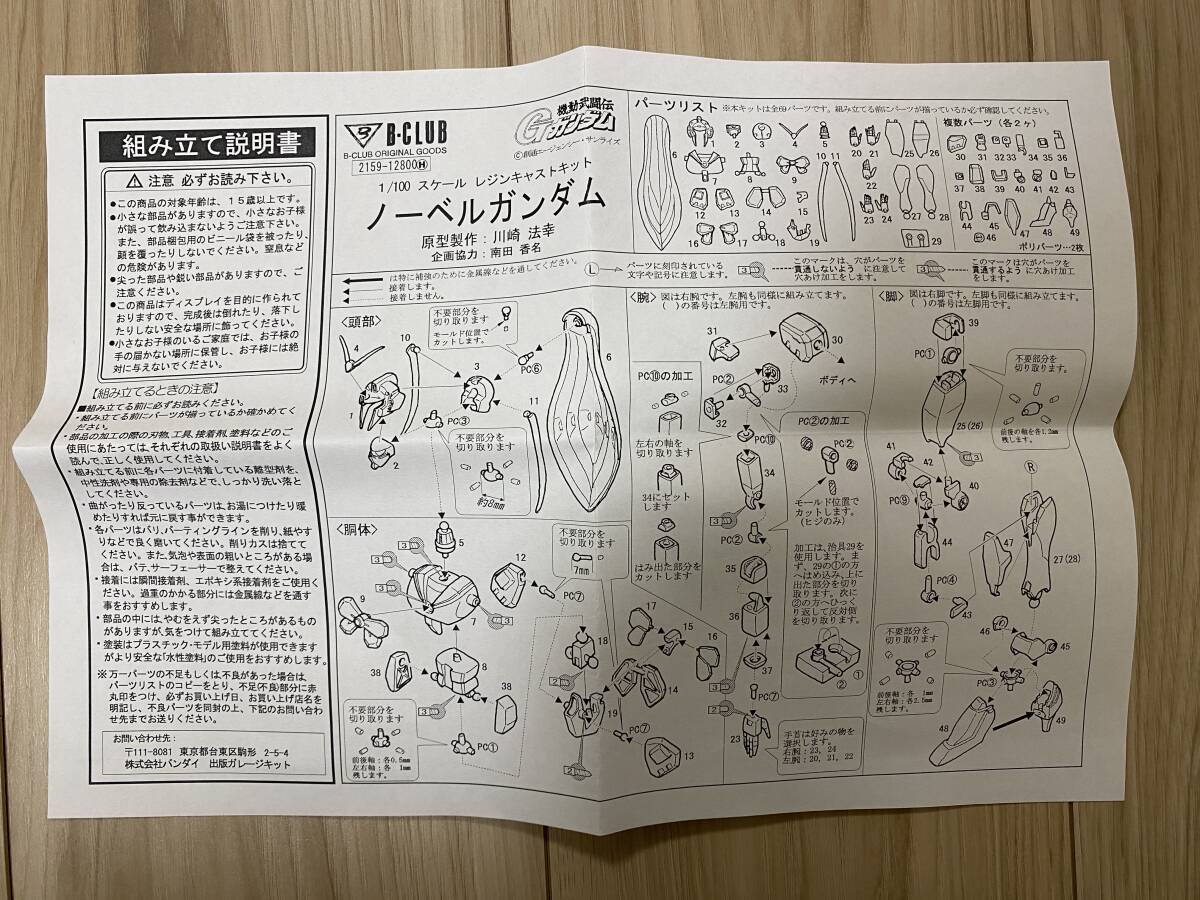 組み立て説明書
⚠ 注意 必ずお読み下さい。
●この商品の対象年齢は、15歳以上です。
●小さな部品がありますので、小さなお子様
が誤って飲み込まないようご注意下さい。
また、部品梱包用のビニール袋を被ったり、
顔を覆ったりしないでください。窒息など
の危険があります。
●尖った部品や鋭い部品がありますので、ご
注意ください。
●この商品はディスプレイを目的に作られて
おりますので、完成後は倒れたり、落下し
たりしない安全な場所に飾ってください。
●小さなお子様のいるご家庭では、お子様の
手の届かない場所に保管し、お子様には絶
対に与えないでください。
【組み立てるときの注意】
■組み立てる前に必ずお読みください。
・組み立てる前にパーツが揃っているか確かめてく
ださい。
・部品の加工の際の刃物、工具、接着剤、塗料などのご
使用にあたっては、それぞれの取扱い説明書をよく
読んで、正しく使用してください。
・組み立てる前に各パーツに付着している離型剤を、
中性洗剤や専用の除去剤などで、しっかり洗い落と
してください。
・曲がったり反っているパーツは、お湯につけたり暖
めたりすれば元に戻す事ができます。
・各パーツはバリ、パーティングラインを削り、紙やす
りなどで良く磨いてください。削りカスは捨てて
ください。また、気泡や表面の粗いところがある場合
は、パテ、サーフェサーで整えてください。
・接着には瞬間接着剤、エポキシ系接着剤をご使用く
ださい。過重のかかる部分には金属線などを通す
事をおすすめします。
・部品の中には、やむをえず尖ったところがあるもの
がありますが、気をつけて組み立ててください。
・塗装はプラスチック・モデル用塗料が使用できます
がより安全な「水性塗料」のご使用をおすすめします。
※万一パーツの不足もしくは不良があった場合は、
パーツリストのコピーをとり、不足(不良)部分に赤
丸印をつけ、必ずお買い上げ日、お買い上げ店名を
明記し、不良パーツを同封の上、下記のお問い合わ
せ先までお送りください。
お問い合わせ先：
〒111-8081 東京都台東区駒形 2-5-4
株式会社バンダイ 出版ガレージキット
B-CLUB
B-CLUB ORIGINAL GOODS
2159-12800Ⓗ
機動武闘伝
Gガンダム
©創通エージェンシー・サンライズ
1/100 スケール レジンキャストキット
ノーベルガンダム
原型製作：川崎 法幸
企画協力：南田 香名
は特に補強のために金属線などを通してください。
接着します。
接着しません。
Ⓛ
パーツに刻印されている
文字や記号に注意します。
3
このマークは、穴がパーツを
貫通しないよう に注意して
穴あけ加工をします。
3
このマークは穴がパーツを
貫通するよう に穴あけ加工
をします。
パーツリスト ※本キットは全69パーツです。組み立てる前にパーツが揃っているか必ず確認してください。
複数パーツ（各2ヶ）
1 2 3 4 5 6 7 8 9 10 11 12 13 14 15 16 17 18 19 20 21 22 23 24 25 26 27 28 29
30 31 32 33 34 35 36
37 38 39 40 41 42 43
44 45 46 47 48 49
ポリパーツ…2枚
〈頭部〉
不要部分を
切り取ります
モールド位置で
カットします。
PC⑥
4 10 3 6 1 11 2
PC③
不要部分を
切り取ります
約8mm
〈胴体〉
5 12 3 3 9 7 3
不要部分を
切り取ります
7mm
PC⑦
38 8 38
不要部分を
切り取ります
PC①
前後軸：各0.5mm
左右軸：各 1mm
残します。
18 17 15 16 14 19 2 2 13
PC⑦
〈腕〉 図は右腕です。左腕も同様に組み立てます。
( )の番号は左腕用です。
31 30
PC②
33
ボディへ
32
PC⑩の加工
左右の軸を
切り取ります
34にセット
します
はみ出た部分を
カットします
PC⑩
34
3
PC②
35 36 37
PC⑦
2
23
PC②の加工
PC②
モールド位置で
カットします。
(ヒジのみ)
加工は、治具29を
使用します。ま
ず、29の①の方
へはめ込み、上に
出た部分を切り
取ります。次に
②の方へひっく
り返して反対側
を切り取ります。
② ①
手首は好みの物を
選択します。
右腕：23, 24
左腕：20, 21, 22
〈脚〉 図は右脚です。左脚も同様に組み立てます。
( )の番号は左脚用です。
39
PC①
不要部分を
切り取ります。
前後の軸を各1.2mm
残します。
25(26)
41 42 40
PC⑨
44
Ⓡ
47 27(28)
PC④
43 46 45
不要部分を
切り取ります
PC③
前後軸：各 1mm
左右軸：各2.5mm
残します。
48 49